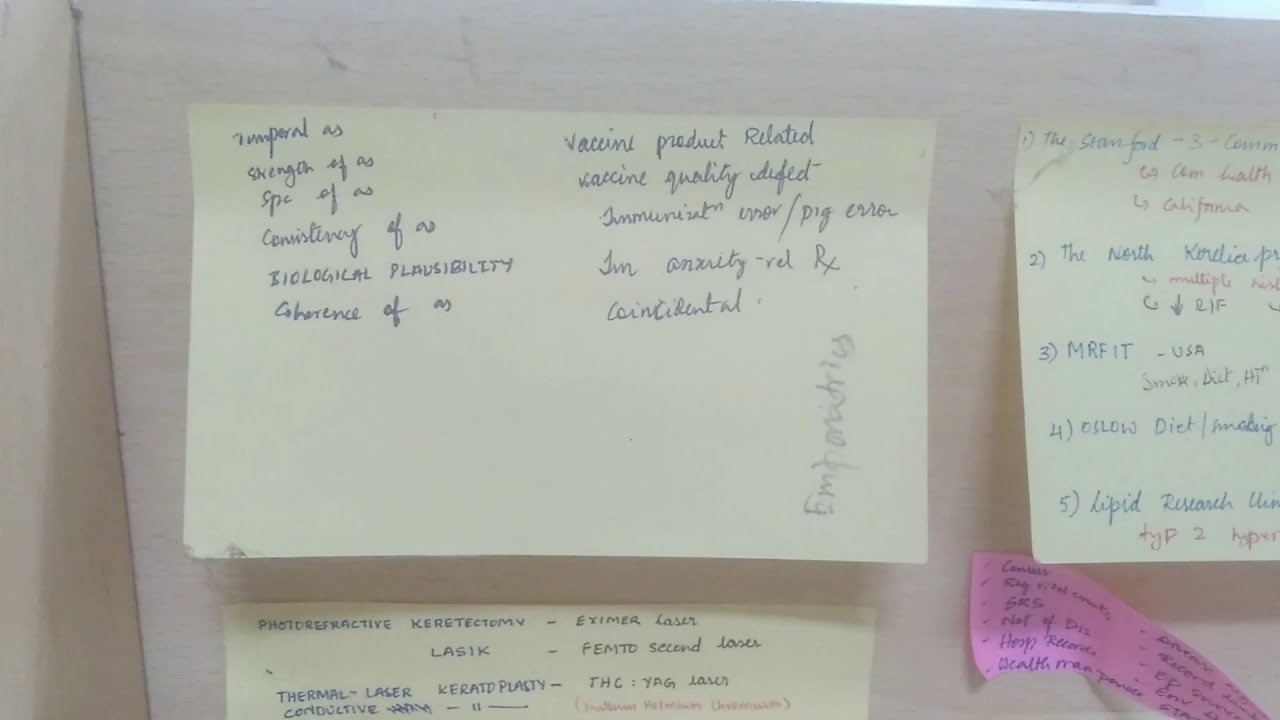 Temporal as
Strength of as
Spc of as
Consistency of as
BIOLOGICAL PLAUSIBILITY
Coherence of as
Vaccine product Related
Vaccine quality defect
Immunizatn error/prg error
Im anxiety-rel Rx
Coincidental
Emporiatrics
1) The Stanford - 3 - Comm
↳ Com health
↳ California
2) The North Kerelia pr
↳ multiple ris
↳ ↓ RIF
3) MRFIT - USA
Smoke, Diet, HTn
4) OSLOW Diet/smoking
5) Lipid Research Clin
typ 2 hyper
- Census
- Reg vital events
- SRS
- Not of Dis
- Hosp Records
- Health man power
- Disease
- Record
- EP
- Env
PHOTOREFRACTIVE KERETECTOMY - EXIMER laser
LASIK - FEMTO second laser
THERMAL-LASER KERATOPLASTY - THC: YAG laser
CONDUCTIVE - 11 -
Holmium Chromium)